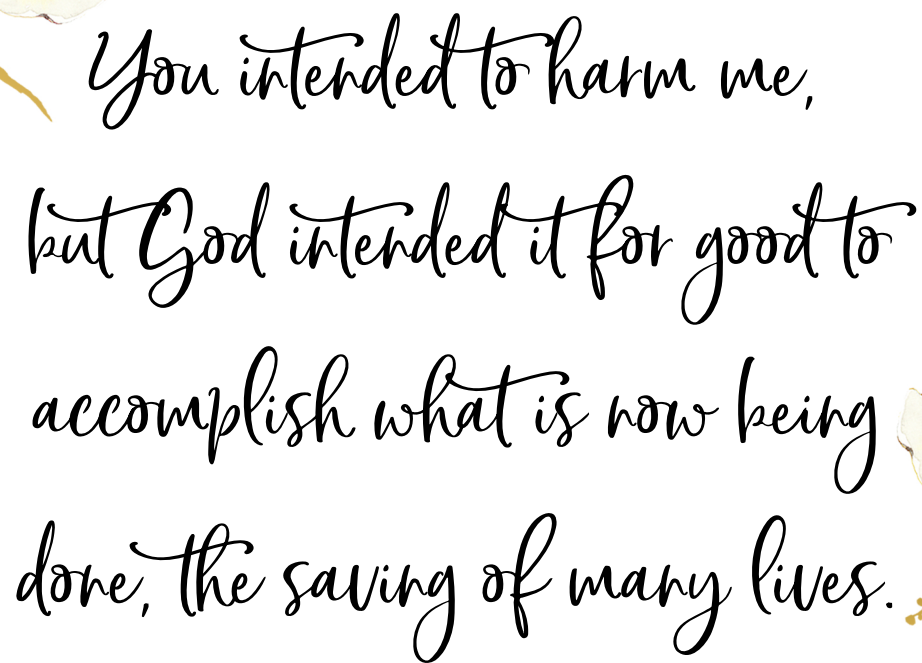 You intended to harm me,
but God intended it for good to
accomplish what is now being
done, the saving of many lives.